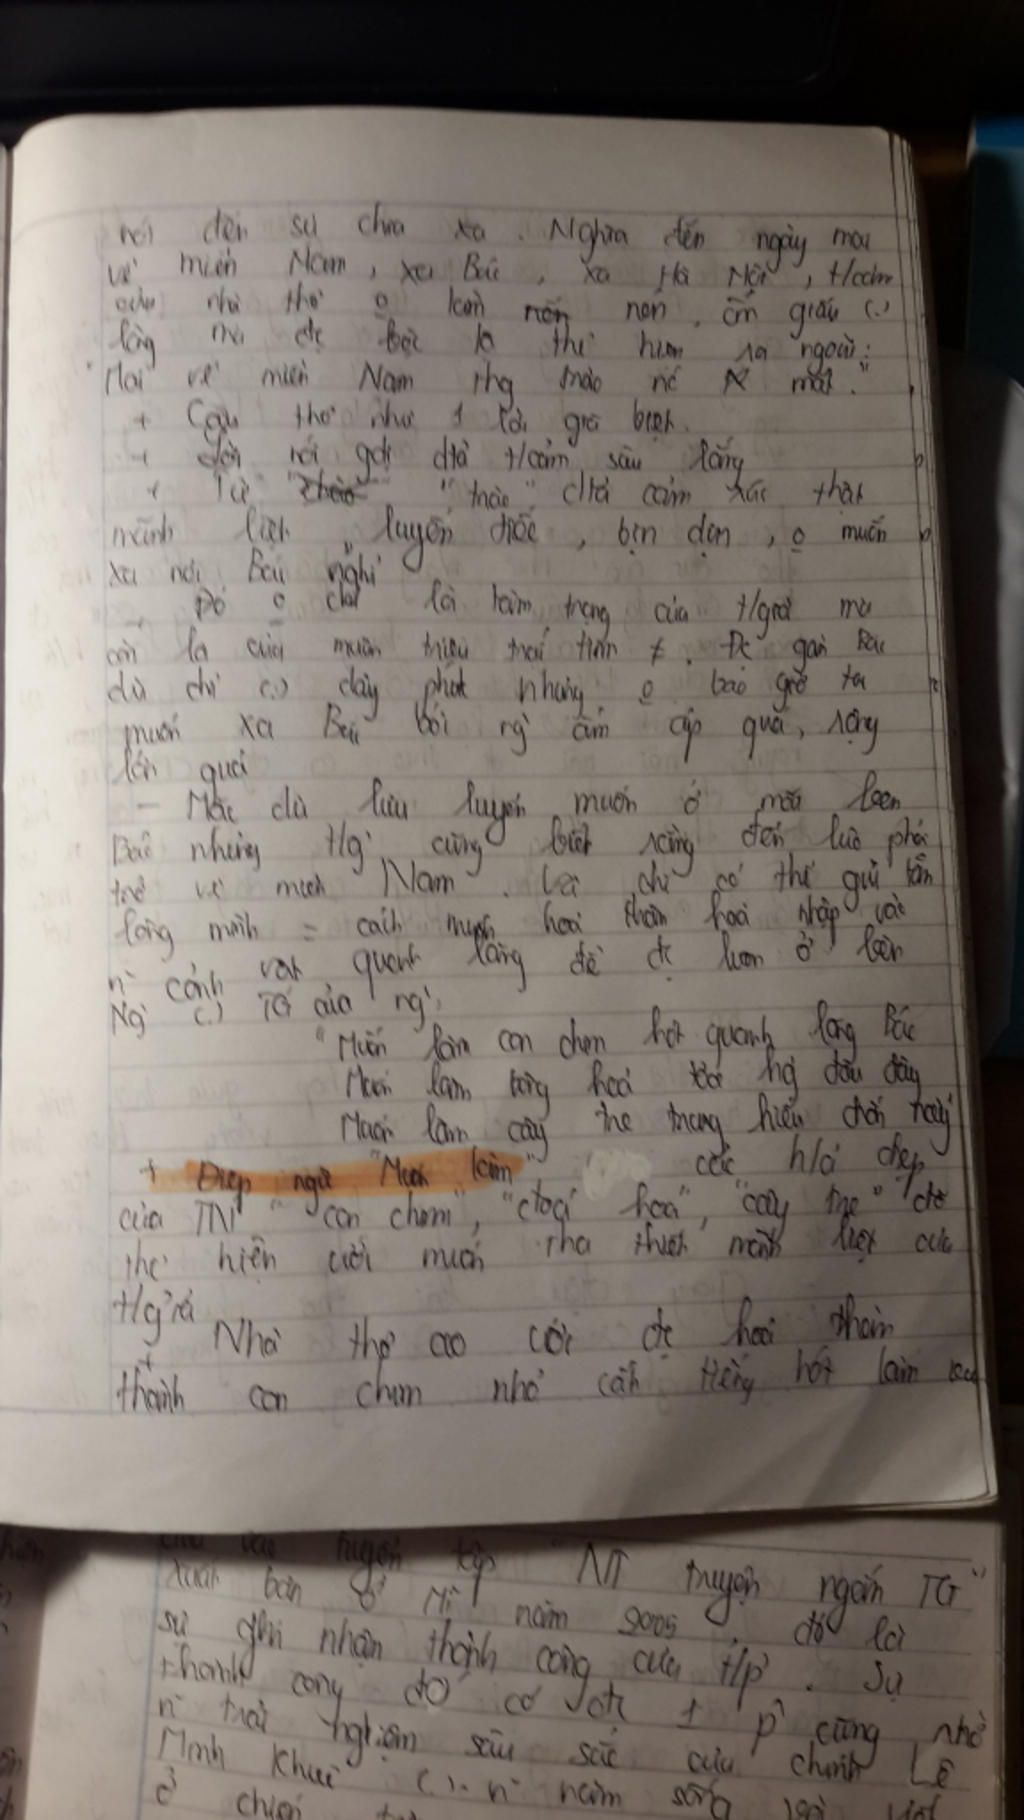 nói đến sự chia xa. Nghĩa đến ngày mai
về miền Nam, xa Bác, xa Hà Nội, t/cảm
của nhà thơ o kìm nén nén, ẩn giấu (.)
lòng mà đc bộc lộ thể hiện ra ngoài:
"Mai về miền Nam thg trào nc mắt."
+ Câu thơ như 1 lời giã biệt.
+ diễn nói giản dị t/cảm sâu lắng
+ Từ "trào" cảm xúc thật
mãnh liệt, luyến tiếc, bịn rịn, o muốn
xa nơi Bác nghỉ
- Đó o chỉ là tâm trạng của t/giả mà
còn là của muôn triệu trái tim ≠. Đc gần Bác
dù chỉ (.) dây phút nhưng o bao giờ ta
muốn xa Bác bởi ng' ấm áp quá, rộng
lớn quá
- Mặc dù lưu luyến muốn ở mãi bên
Bác nhưng t/g' cũng biết rằng đến lúc phải
trở về miền Nam. Và chỉ có thể gửi tấm
lòng mình = cách muốn hoá thân hoà nhập vào
n~ cảnh vật quanh lăng để đc luôn ở bên
Ng' (.) TG của ng'.
"Muốn làm con chim hót quanh lăng Bác
Muốn làm bông hoa toả hg đâu đây
Muốn làm cây tre trung hiếu chốn này"
+ Điệp ngữ "Muốn làm" các h/ả đẹp
của TN "con chim", "đoá hoa", "cây tre" đã
thể hiện ước muốn tha thiết mãnh liệt của
t/giả
+ Nhà thơ ao ước đc hoá thân
thành con chim nhỏ cất tiếng hót làm
tuyển tập "NT truyện ngắn TG"
xuất bản ở Mĩ năm 2005, đó là
sự ghi nhận thành công của t/p'. Sự
thành công đó có đc 1 p' cũng nhờ
n~ trải nghiệm sâu sắc của chính Lê
Minh Khuê (.) n~ năm sống
ở chiến